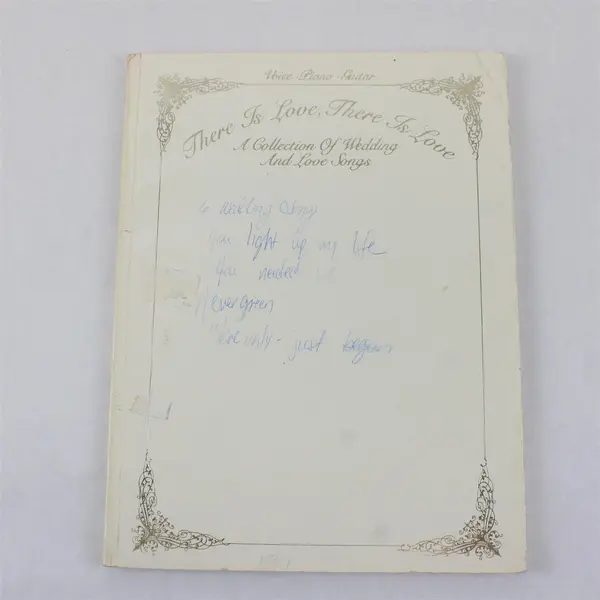 Voice · Piano · Guitar
There Is Love, There Is Love
A Collection Of Wedding
And Love Songs
wedding song
you light up my life
You needed
evergreen
We only - just begun